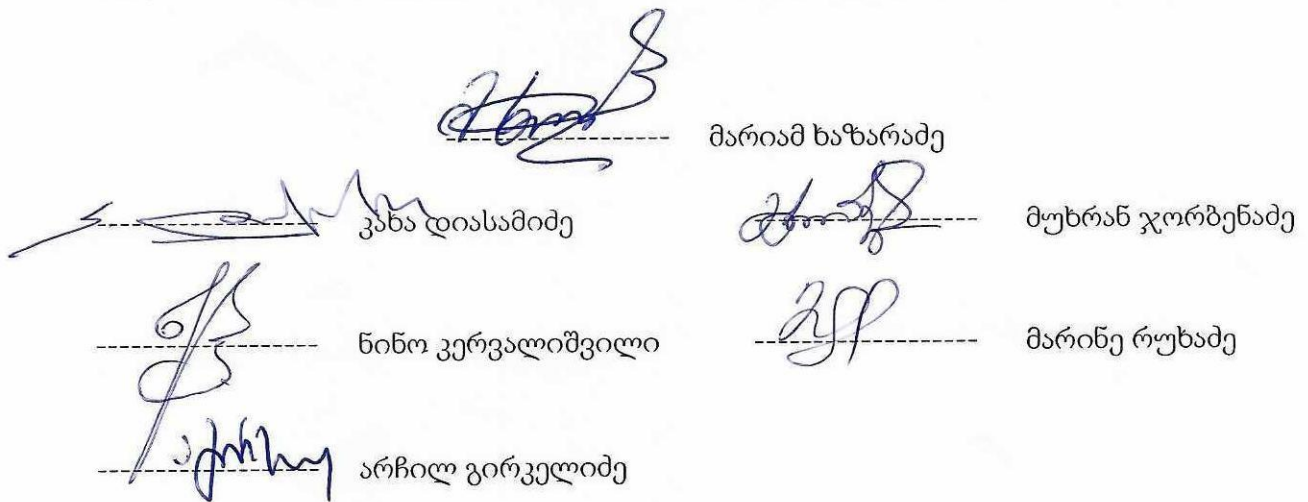 მარიამ ხაზარაძე
კახა დიასამიძე
მუხრან ჯორბენაძე
ნინო კერვალიშვილი
მარინე რუხაძე
არჩილ გირკელიძე